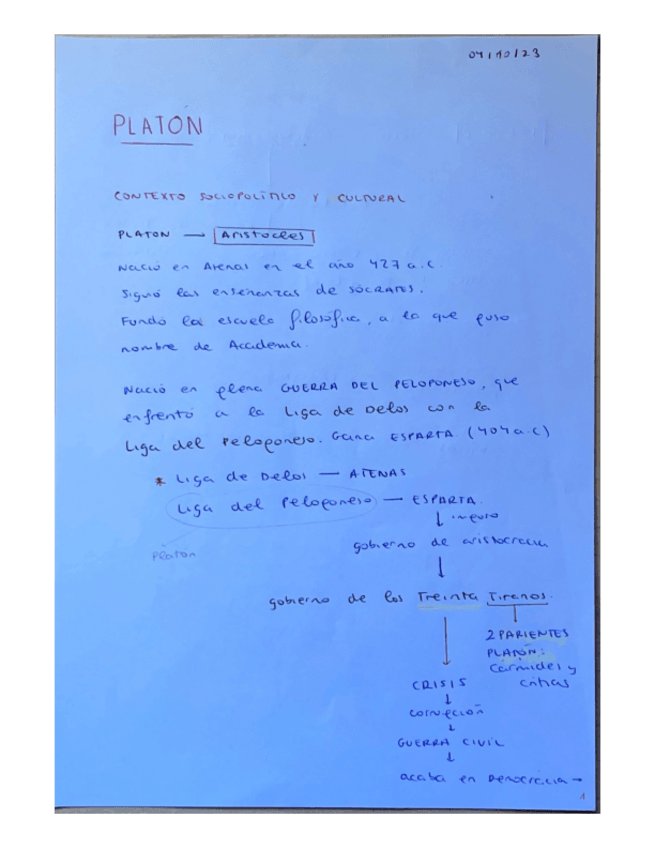 04/10/23
PLATÓN
CONTEXTO SOCIOPOLÍTICO Y CULTURAL
PLATON → Aristocles
Nació en Atenas en el año 427 a.C.
Siguió las enseñanzas de SÓCRATES.
Fundó la escuela filosófica, a la que puso
nombre de Academia.
Nació en plena GUERRA DEL PELOPONESO, que
enfrentó a la Liga de Delos con la
Liga del Peloponeso. Gana ESPARTA (404 a.C)
* Liga de Delos — ATENAS
Liga del Peloponeso — ESPARTA.
↓ impuso
Platon
gobierno de aristocracia
↓
gobierno de los Treinta Tiranos.
↓
2 PARIENTES
PLATÓN:
Cármides y
Critias
CRISIS
↓
corrupción
↓
GUERRA CIVIL
↓
acaba en Democracia →
1